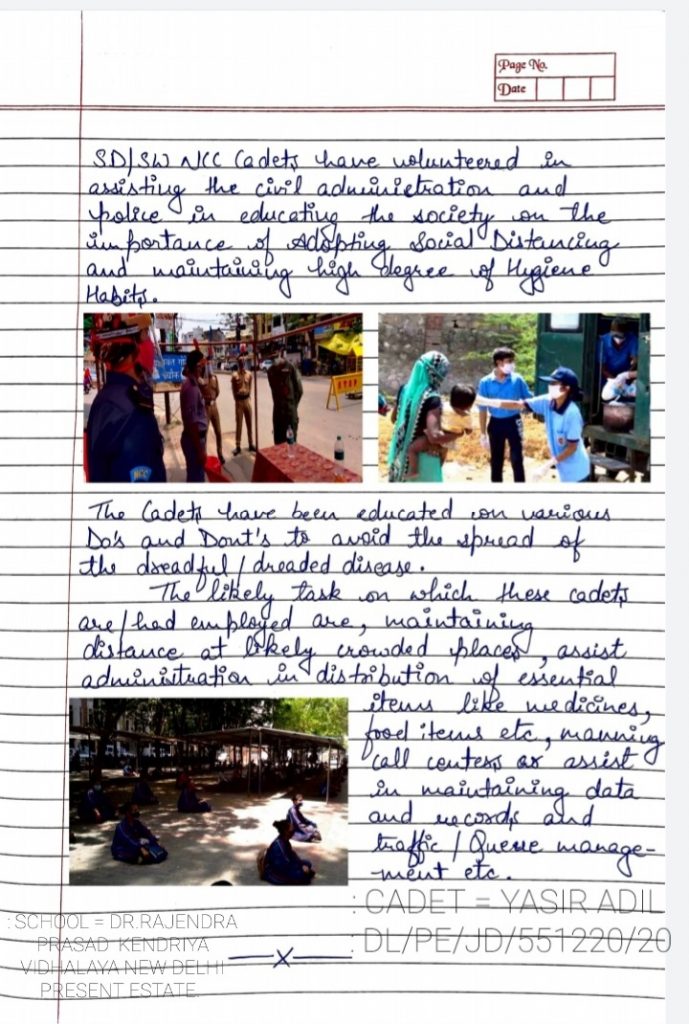 Page No.
Date
SD/SW NCC Cadets have volunteered in
assisting the civil administration and
police in educating the society on the
importance of Adopting Social Distancing
and maintaining high degree of Hygiene
Habits.
The Cadets have been educated on various
Do's and Dont's to avoid the spread of
the dreadful / dreaded disease.
The likely task on which these cadets
are/had employed are, maintaining
distance at likely crowded places, assist
administration in distribution of essential
items like medicines,
food items etc, manning
call centers or assist
in maintaining data
and records and
traffic / Queue manage-
ment etc.
: CADET = YASIR ADIL
: DL/PE/JD/551220/20
: SCHOOL = DR.RAJENDRA
PRASAD KENDRIYA
VIDHALAYA NEW DELHI
PRESENT ESTATE.
—x—